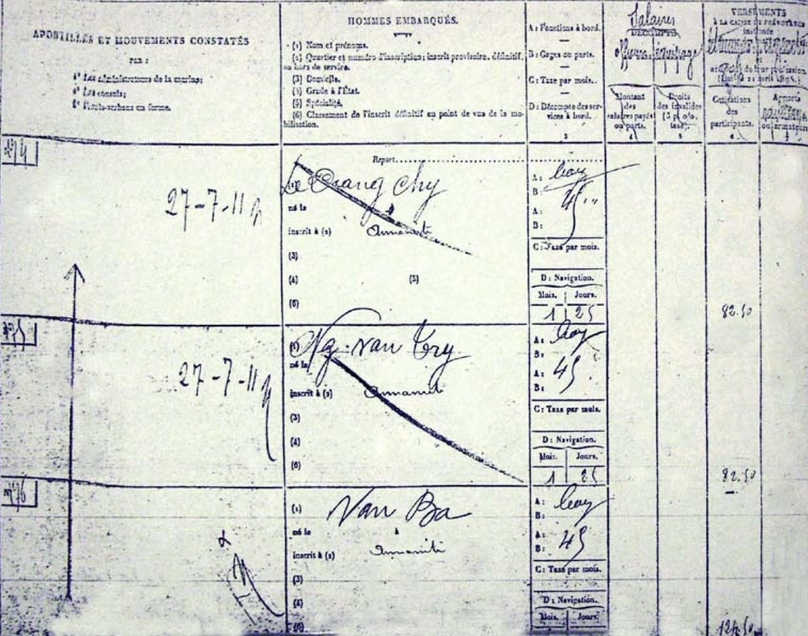 APOSTILLES ET MOUVEMENTS CONSTATÉS
PAR :
1° Les administrateurs de la marine;
2° Les consuls;
HOMMES EMBARQUÉS.
(1) Nom et prénoms.
(2) Quartier et numéro d'inscription; inscrit provisoire, définitif,
ou hors de service.
(3) Domicile.
(4) Grade à l'État.
(5) Spécialité.
(6) Classement de l'inscrit définitif au point de vue de la mo-
bilisation.
A : Fonctions à bord.
B : Gages ou parts.
C : Taxe par mois.
D : Décompte des ser-
vices à bord.
Salaires
DÉCOMPTE
Montant
des
salaires payés
ou parts.
Droits
des invalides
VERSEMENTS
À LA CAISSE DE PRÉVOYANCE
Cotisations
des
participants.
Apports
Report
27-7-11
Le Quang Chy
né le
à
inscrit à (2) Annamite
(3)
(4) (5)
(6)
A : boy
B : 45
A :
B :
C : Taxe par mois.
D : Navigation.
Mois. Jours.
1 25
82.50
27-7-11
(1) Ng. van Try
né le
inscrit à (2) Annamite
(3)
(4)
(6)
A : boy
B :
A : 45
B :
C : Taxe par mois.
D : Navigation.
Mois. Jours.
1 25
82.50
(1) Van Ba
né le à
inscrit à (2) Annamite
(3)
(4)
(6)
A : boy
B :
A : 45
B :
C : Taxe par mois.
D : Navigation.
Mois. Jours.